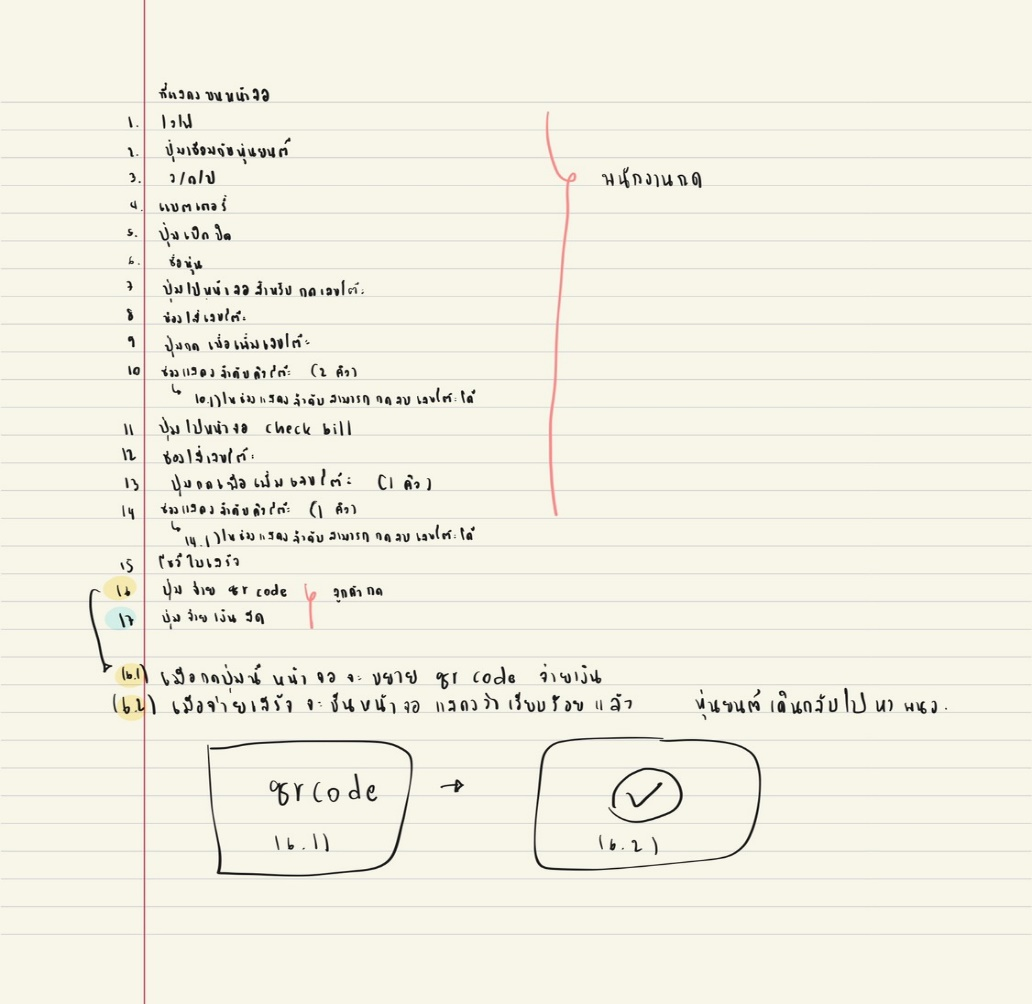 ที่แสดงบนหน้าจอ
1. ไวไฟ
2. ปุ่มเชื่อมกับหุ่นยนต์
3. ว/ด/ป
4. แบตเตอรี่
5. ปุ่มเปิดปิด
6. ชื่อหุ่น
7 ปุ่มไปหน้าจอสำหรับกดเลขโต๊ะ
8 ช่องใส่เลขโต๊ะ
9 ปุ่มกดเพื่อเพิ่มเลขโต๊ะ
10 ช่องแสดงลำดับคิวโต๊ะ (2 คิว)
10.1) ในช่องแสดงลำดับ สามารถกดลบเลขโต๊ะได้
11 ปุ่มไปหน้าจอ check bill
12 ช่องใส่เลขโต๊ะ
13 ปุ่มกดเพื่อเพิ่มเลขโต๊ะ (1 คิว)
14 ช่องแสดงลำดับคิวโต๊ะ (1 คิว)
14.1) ในช่องแสดงลำดับ สามารถกดลบเลขโต๊ะได้
พนักงานกด
15 โชว์ใบเสร็จ
16 ปุ่มจ่าย qr code
17 ปุ่มจ่ายเงินสด
ลูกค้ากด
16.1) เมื่อกดปุ่มนี้ หน้าจอจะขยาย qr code จ่ายเงิน
16.2) เมื่อจ่ายเสร็จ จะขึ้นหน้าจอแสดงว่าเรียบร้อยแล้ว หุ่นยนต์เดินกลับไปหา พนง.
qr code →
16.1) 16.2)